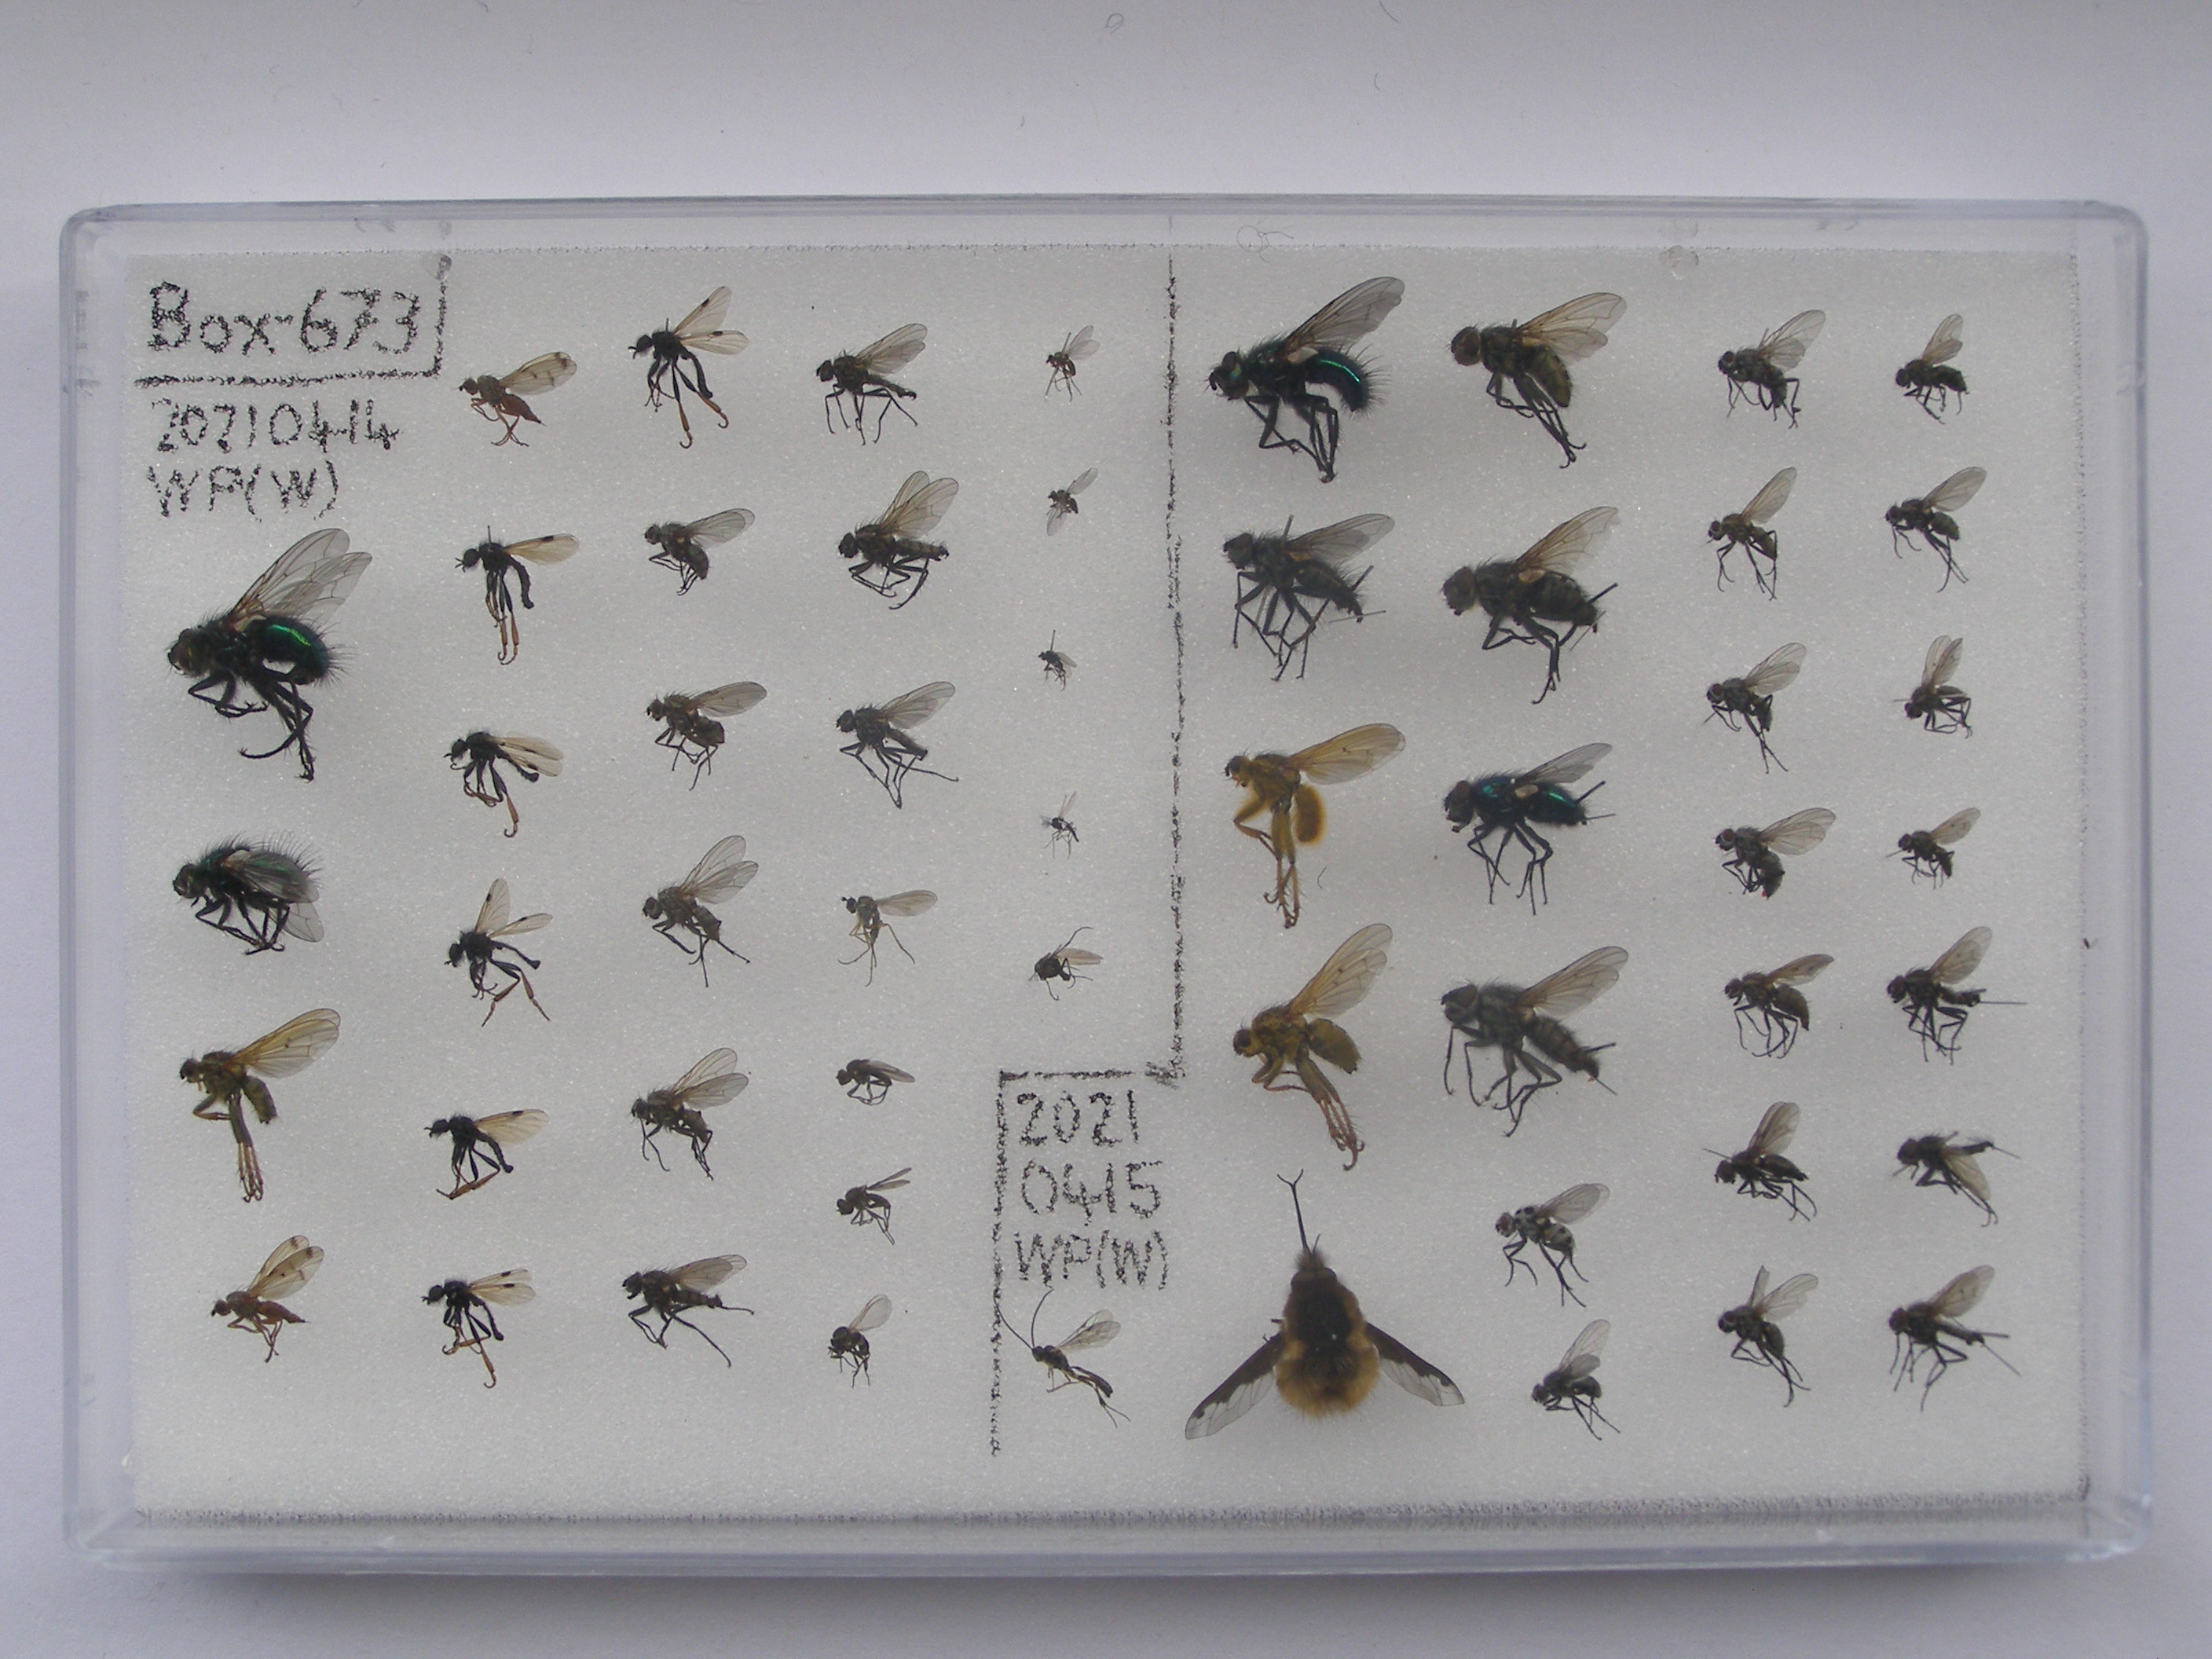 Box-673
20210414
WP(W)
2021
0415
WP(W)